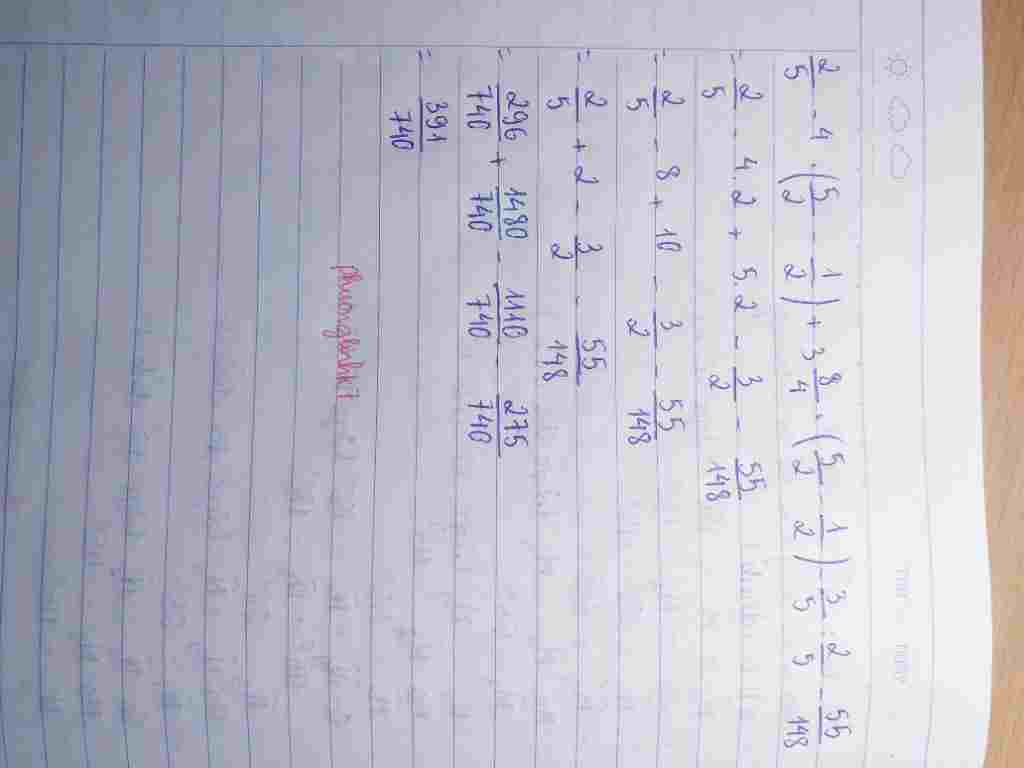 2/5 - 4 . (5/2 - 1/2) + 3 8/4 . (5/2 - 1/2) - 3/5 : 2/5 - 55/148
= 2/5 - 4.2 + 5.2 - 3/2 - 55/148
= 2/5 - 8 + 10 - 3/2 - 55/148
= 2/5 + 2 - 3/2 - 55/148
= 296/740 + 1480/740 - 1110/740 - 275/740
= 391/740